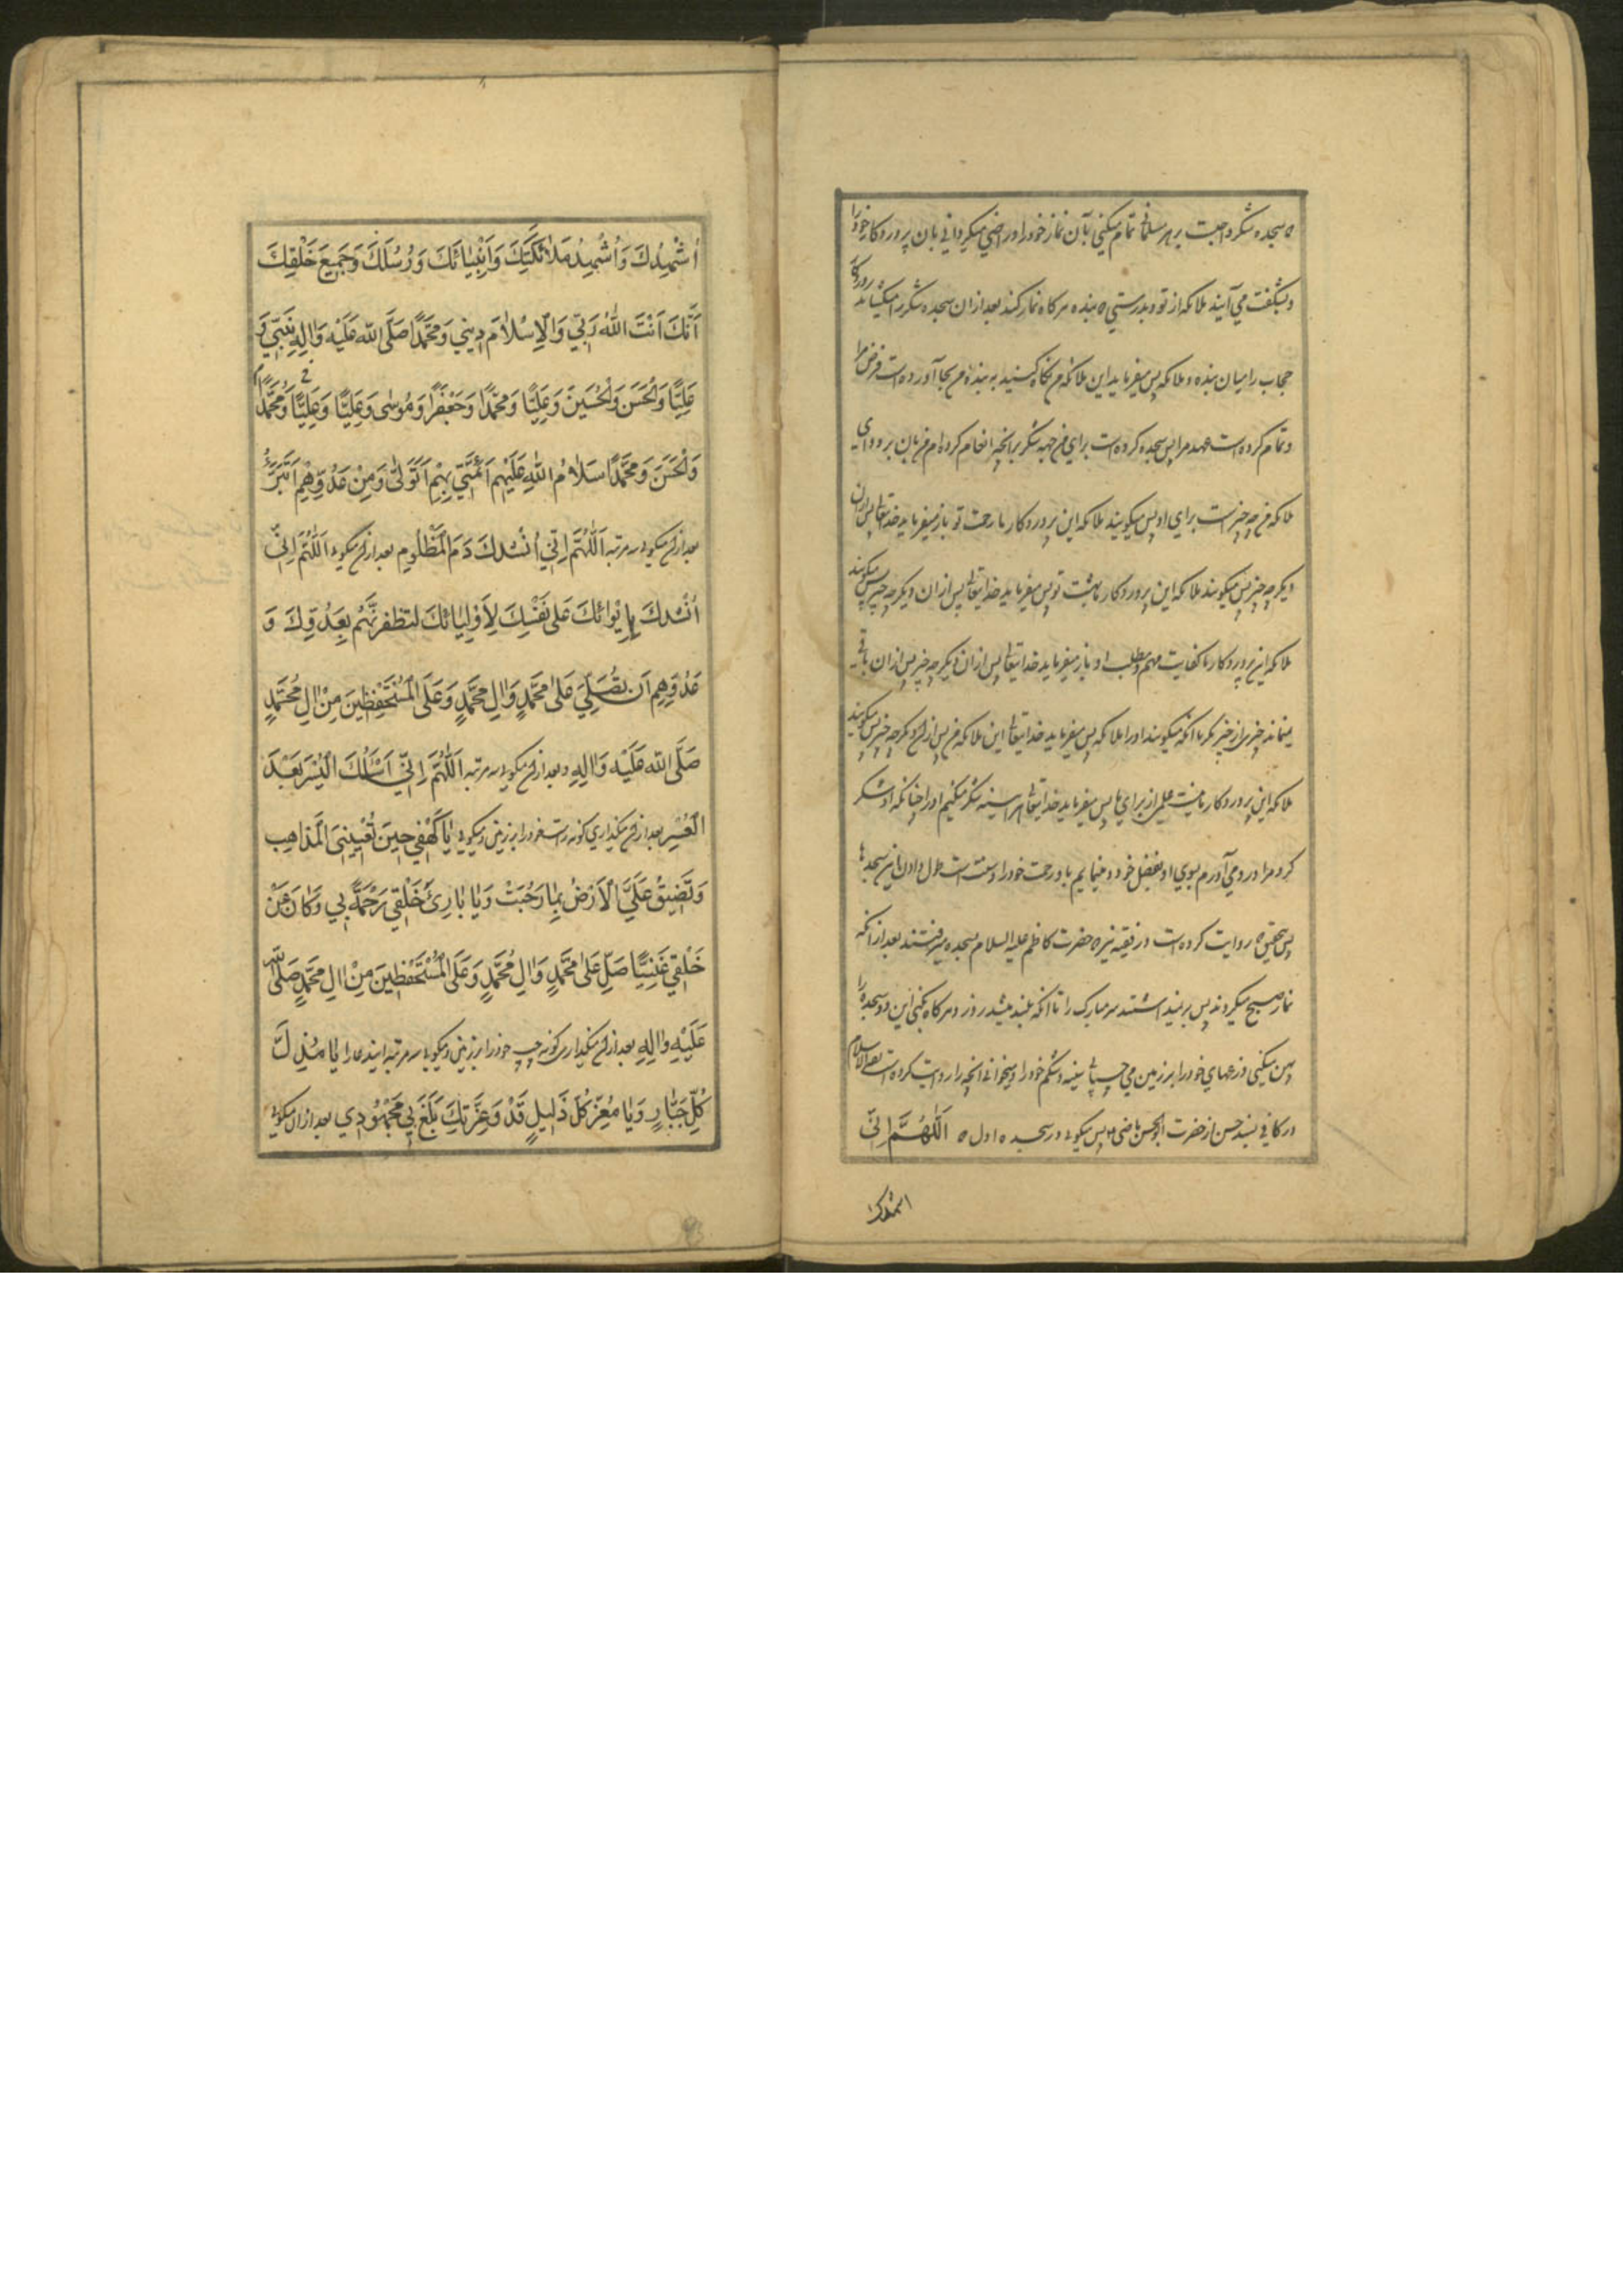 که سجده شکر واجبست بر هر مسلمانی تمام میکنی بآن نماز خود را و راضی میکردانی بان پروردکار خود را
و بشکفت می آیند ملائکه از تو و بدرستی که بنده هر کاه نماز کند بعد از ان سجده شکر کند میکشاید پروردکار
حجاب را میان بنده و ملائکه پس میفرماید این ملائکه من نکاه کنید به بنده من بجا آورده است فرض مرا
و تمام کرده است عهد مرا پس سجده کرده است برای من جهة شکر بر انچه انعام کرده ام من بان بر او ای
ملائکه من چه چیز است برای او پس میکویند ملائکه این پروردکار ما رحمت تو باز میفرماید خدایتعالی پس از ان
دیکر چه چیز پس میکویند ملائکه این پروردکار ما بهشت تو پس میفرماید خدایتعالی پس از ان دیکر چه چیز پس میکویند
ملائکه این پروردکار ما کفایت مهم و مطلب او باز میفرماید خدایتعالی پس از ان دیکر چه چیز پس از ان باقی
نمیماند چیزی از خیر مکر با انکه میکویند او را ملائکه پس میفرماید خدایتعالی این ملائکه من پس از ان دیکر چه چیز پس میکویند
ملائکه این پروردکار ما نیست علمی از برای ما پس میفرماید خدایتعالی هر آینه شکر میکنم او را چنانکه او شکر
کرد مرا و رو می آورم بسوی او بفضل خود و مینمایم باو رحمت خود را و سنت است طول دادن این سجدها
پس بتحقیق که روایت کرده است در فقیه نیز که حضرت کاظم علیه السلام بسجده میرفتند بعد از انکه
نماز صبح میکردند پس بر نمیداشتند سر مبارک را تا انکه بلند میشد روز و هر کاه بکنی این دو سجده را
پهن میکنی ذرعهای خود را بر زمین و می چسبانی سینه و شکم خود را و میخوانی انچه را روایت کرده است ثقة الاسلام
در کافی بسند حسن از حضرت ابوالحسن ماضی ع پس میکوئی در سجده اول که اَللّٰهُمَّ اِنّی
اشهدک
اُشْهِدُكَ وَاُشْهِدُ مَلاٰئِكَتِكَ وَاَنْبِيٰائَكَ وَرُسُلَكَ وَجَمِيعَ خَلْقِكَ
اَنَّكَ اَنْتَ اللّٰهُ رَبّي وَالْاِسْلاٰمَ دِيني وَمُحَمَّدًا صَلَّى اللّٰه عَلَيْهِ وَاٰلِهِ نَبِيّي وَ
عَلِيًّا وَالْحَسَنَ وَالْحُسَيْنَ وَعَلِيًّا وَمُحَمَّدًا وَجَعْفَرًا وَمُوسٰى وَعَلِيًّا وَمُحَمَّدًا وَعَلِيًّا
وَالْحَسَنَ وَمُحَمَّدًا سَلاٰمُ اللّٰهِ عَلَيْهِم اَئِمَّتي بِهِمْ اَتَوَلّٰى وَمِنْ عَدُوِّهِمْ اَتَبَرَّءُ
بعد از ان میکوئی سه مرتبه اَللّٰهُمَّ اِنّي اُنْشُدُكَ دَمَ الْمَظْلُومِ بعد از ان میکوئی اَللّٰهُمَّ اِنّي
اُنْشُدُكَ بِاِيْوٰائِكَ عَلٰى نَفْسِكَ لِاَوْلِيٰائِكَ لتظفرنّهُمْ بِعَدُوِّكَ وَ
عَدُوِّهِمِ اَنْ تُصَلِّيَ عَلٰى مُحَمَّدٍ وَاٰلِ مُحَمَّدٍ وَعَلَى الْمُسْتَحْفِظِينَ مِنْ اٰلِ مُحَمَّدٍ
صَلَّى اللّٰه عَلَيْهِ وَاٰلِهِ و بعد از ان میکوئی سه مرتبه اَللّٰهُمَّ اِنّي اَسْئَلُكَ الْيُسْرَ بَعْدَ
الْعُسْرِ بعد از ان میکذاری کونه راست خود را بر زمین و میکوئی یٰا كَهْفي حِينَ تُعْيِينِيَ الْمَذٰاهِبُ
وَتَضِيقُ عَلَيَّ الْاَرْضُ بِمٰا رَحُبَتْ وَيٰا بٰارِئَ خَلْقي رَحْمَةً بي وَكٰانَ عَنْ
خَلْقي غَنِيًّا صَلِّ عَلٰى مُحَمَّدٍ وَاٰلِ مُحَمَّدٍ وَعَلَى الْمُسْتَحْفِظِينَ مِنْ اٰلِ مُحَمَّدٍ صَلَّى اللّٰه
عَلَيْهِ وَاٰلِهِ بعد از ان میکذاری کونه چپ خود را بر زمین و میکوئی سه مرتبه ایندعا را یٰا مُذِلَّ
كُلِّ جَبّٰارٍ وَيٰا مُعِزَّ كُلِّ ذَلِيلٍ قَدْ وَعِزَّتِكَ بَلَغَ بي مَجْهُودي بعد از ان میکوئی